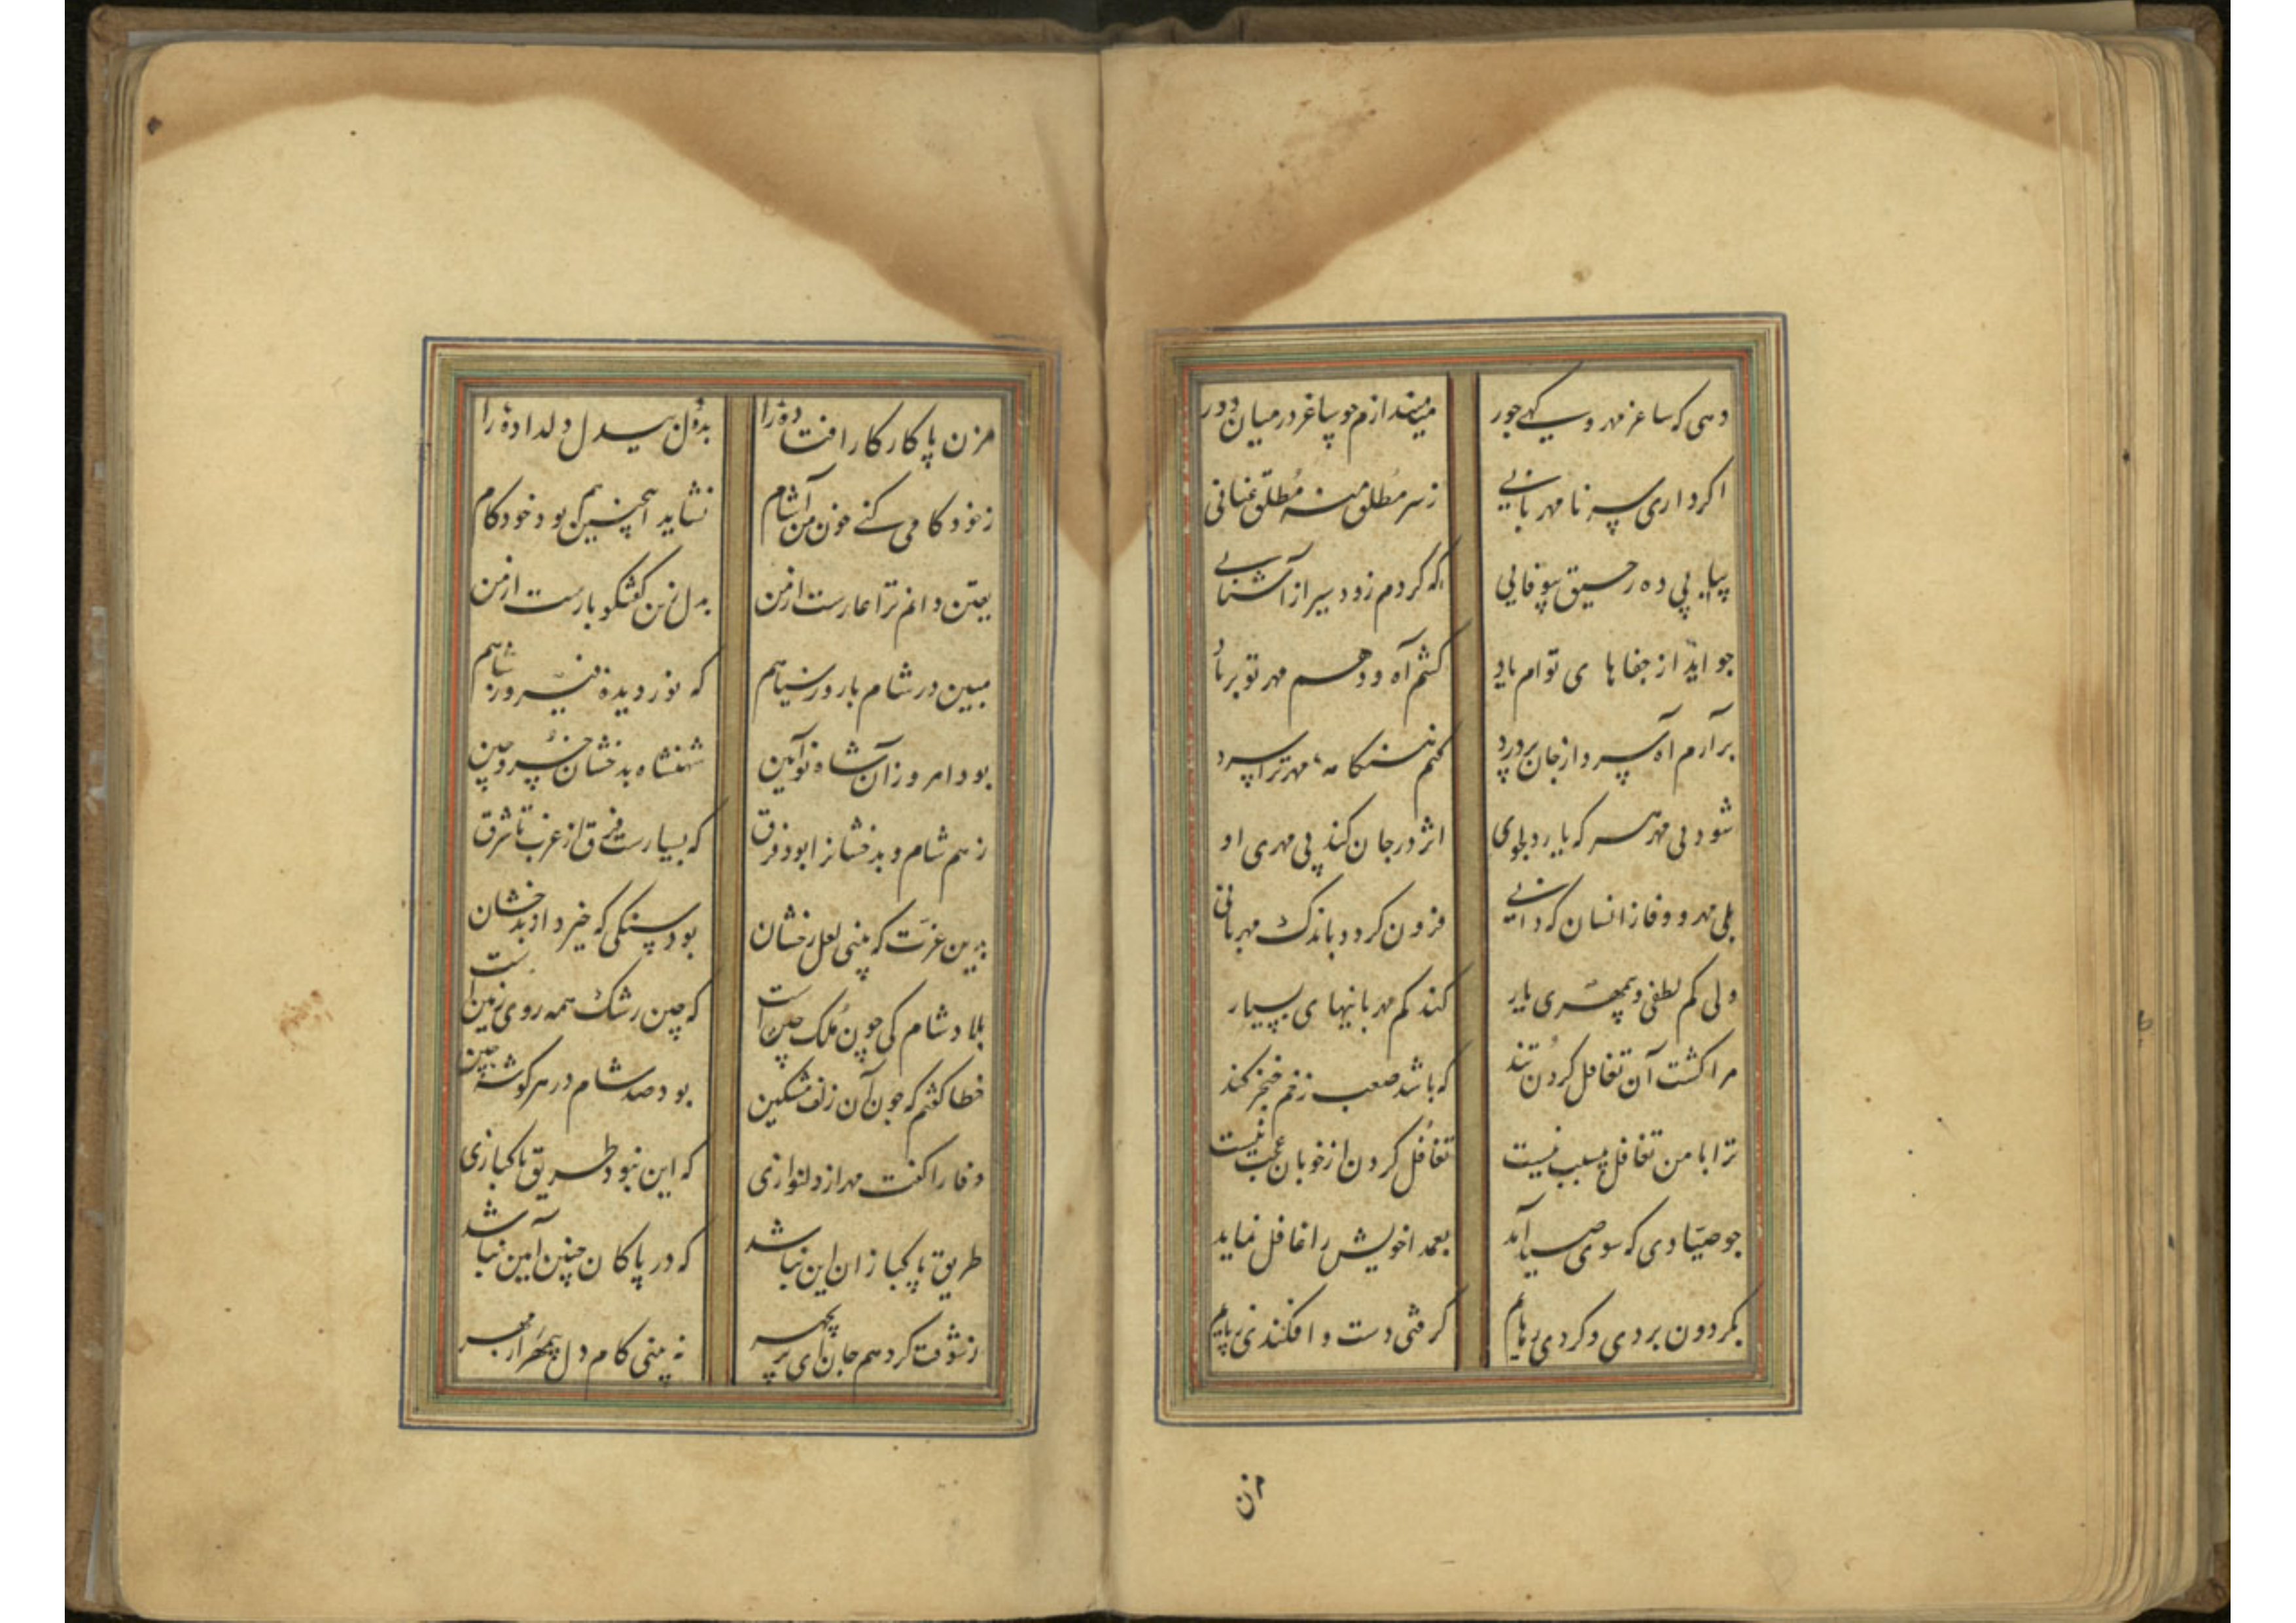 دهی که ساغر مهر و کهی جور میندازم چو ساغر در میان دور
اکر داری سر نا مهربانی ز سر مطلق منه مطلق عنانی
پیاپی ده رحیق بیوفایی که کردم زود سیر از آشنایی
جو اید از جفاها ی توام یاد کشم آه و دهم مهر تو بر باد
برآرم آه سرد از جان پر درد کنم هنکامهٔ مهر ترا سرد
شود بی مهر هر که یا رد بلوی اثر در جان کند بی مهری او
بلی مهر و وفا ز انسان که دانی فزون کردد باندک مهربانی
ولی کم لطفی و بیمهری یار کند کم مهربانیهای بسیار
مرا کشت آن تغافل کردن تند که باشد صعب زخم خنجر کند
ترا با من تغافل بی سبب نیست تغافل کردن از خوبان عجب نیست
جو صیادی که سوی صید آمد بعمدا خویش را غافل نماید
بکردون بردی و کردی رهایم کرفتی دست و افکندی ز پایم
از
مزن پا کار کار افتاده را بدل بیدل دلداده را
ز خودکامی کنی خون من آشام نشاید اینچنین هم بود خودکام
یقین دانم ترا عارست از من بدل زین کفتکو بارست از من
مبین در شام با روز سیاهم که نور دیدهٔ فیروز شاهم
بود امروز آن شاه نوآیین شهنشاه بدخشان خسرو چین
ز هم شام و بدخشانرا بود فرق که بسیارست فرق از غرب تا شرق
بدین عزت که بینی لعل رخشان بود سنکی که خیزد از بدخشان
بلاد شام کی چون ملک چین است که چین رشک همه روی زمین است
خطا کفتم که جون آن زلف مشکین بود صد شام در هر کوشهٔ چین
وفا را کفت مهر از دلنوازی که این نبود طریق پاکبازی
طریق پاکبازان این نباشد که در پاکان چنین آیین نباشد
ز شوقت کر دهم جان ای پریچهر نه بینی کام دل بیمهر از مهر